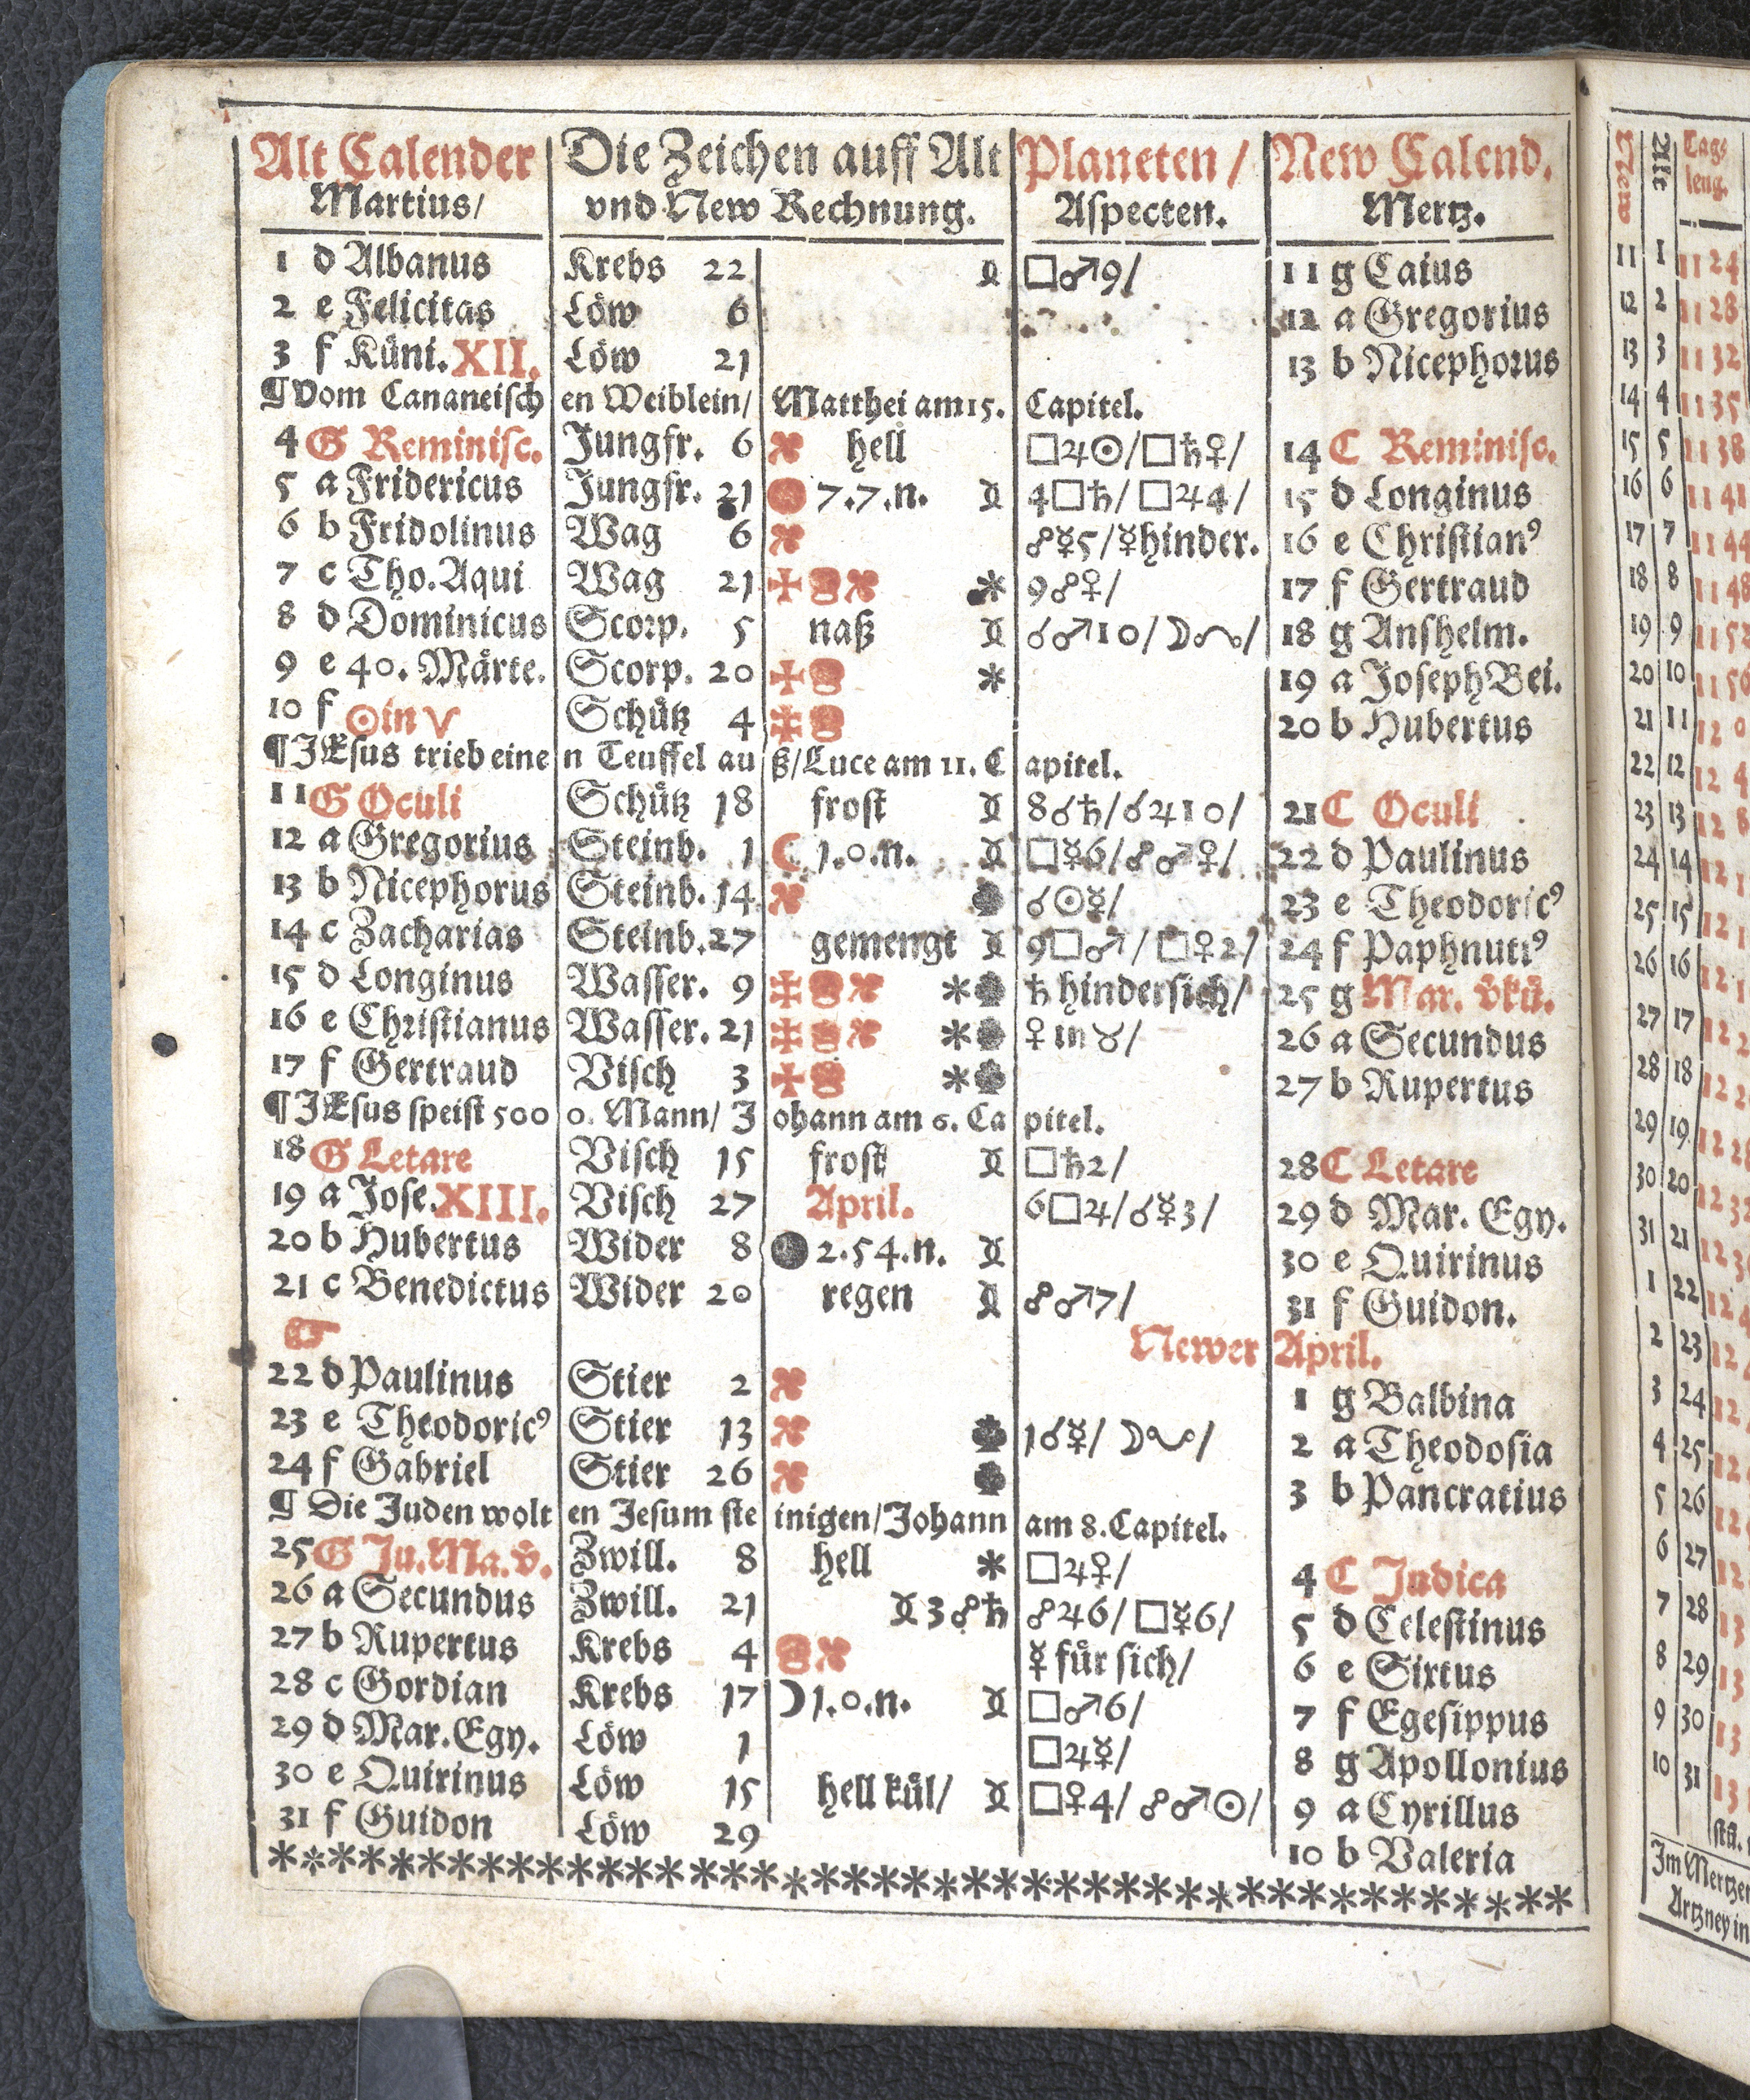 Alt Calender Die Zeichen auff Alt Planeten/ New Calend.
Martius/ vnd New Rechnung. Aspecten. Mertz.
1 d Albanus Krebs 22 □♂9/ 11 g Caius
2 e Felicitas Löw 6 12 a Gregorius
3 f Küni. XII. Löw 21 13 b Nicephorus
¶ Vom Cananeischen Weiblein/ Matthei am 15. Capitel.
4 G Reminisc. Jungfr. 6 hell □♃☉/□♄♀/ 14 C Reminisc.
5 a Fridericus Jungfr. 21 7.7.n. 4□♄/ □♃4/ 15 d Longinus
6 b Fridolinus Wag 6 ☍☿5/☿hinder. 16 e Christianꝰ
7 c Tho. Aqui Wag 21 * 9☍♀/ 17 f Gertraud
8 d Dominicus Scorp. 5 naß ☌♂10/☽☊/ 18 g Anshelm.
9 e 40. Märte. Scorp. 20 * 19 a Joseph Bei.
10 f ☉in ♈ Schütz 4 20 b Hubertus
¶ JEsus trieb einen Teuffel auß/ Luce am 11. Capitel.
11 G Oculi Schütz 18 frost 8☌♄/☌♃10/ 21 C Oculi
12 a Gregorius Steinb. 1 ☾ 1.0.n. □☿6/☍♂♀/ 22 d Paulinus
13 b Nicephorus Steinb. 14 ☌☉☿/ 23 e Theodoricꝰ
14 c Zacharias Steinb. 27 gemengt 9□♂/ □♀2/ 24 f Paphnutiꝰ
15 d Longinus Wasser. 9 * ♄ hindersich/ 25 g Mar. vkü.
16 e Christianus Wasser. 21 * ♀ in ♉/ 26 a Secundus
17 f Gertraud Visch 3 * 27 b Rupertus
¶ JEsus speist 5000. Mann/ Johann am 6. Capitel.
18 G Letare Visch 15 frost □♄2/ 28 C Letare
19 a Jose. XIII. Visch 27 April. 6□♃/☌☿3/ 29 d Mar. Egy.
20 b Hubertus Wider 8 2.54.n. 30 e Quirinus
21 c Benedictus Wider 20 regen ☍♂7/ 31 f Guidon.
☞ Newer April.
22 d Paulinus Stier 2 1 g Balbina
23 e Theodoricꝰ Stier 13 1☌☿/ ☽☋/ 2 a Theodosia
24 f Gabriel Stier 26 3 b Pancratius
¶ Die Juden wolten Jesum steinigen/ Johann am 8. Capitel.
25 G Ju. Ma. v. Zwill. 8 hell * □♃♀/ 4 C Judica
26 a Secundus Zwill. 21 3☍♄ ☍♃6/ □☿6/ 5 d Celestinus
27 b Rupertus Krebs 4 ☿ für sich/ 6 e Sixtus
28 c Gordian Krebs 17 ☽ 1.0.n. □♂6/ 7 f Egesippus
29 d Mar. Egy. Löw 1 □♃☿/ 8 g Apollonius
30 e Quirinus Löw 15 hell kül/ □♀4/ ☍♂☉/ 9 a Cyrillus
31 f Guidon Löw 29 10 b Valeria
New Alt Tags leng.
11 1 11 24
12 2 11 28
13 3 11 32
14 4 11 35
15 5 11 38
16 6 11 41
17 7 11 44
18 8 11 48
19 9 11 52
20 10 11 56
21 11 12 0
22 12 12 4
23 13 12 8
24 14 12
25 15 12
26 16 12
27 17 12
28 18 12
29 19 12
30 20 12
31 21 12
1 22 12
2 23 12
3 24 12
4 25 12
5 26 12
6 27 12
7 28 13
8 29 13
9 30 13
10 31 13
Im Mertzen
Artzney in